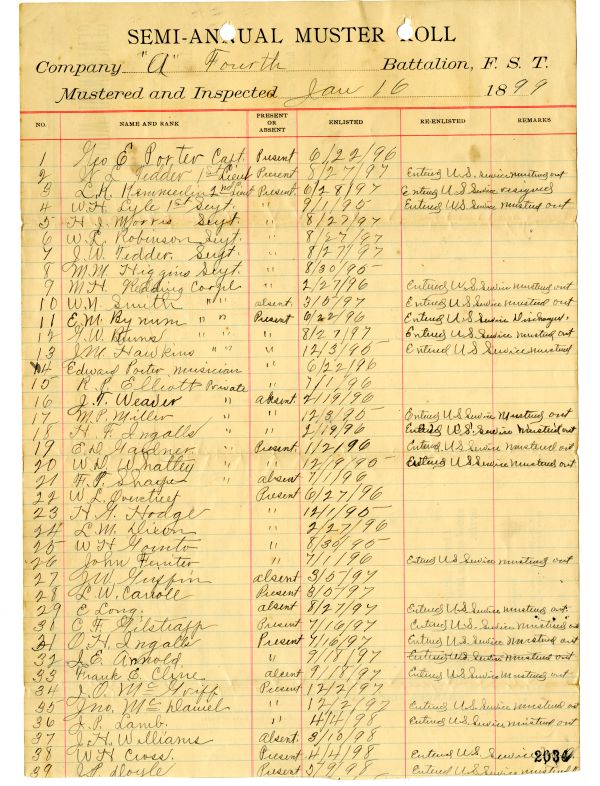 SEMI-ANNUAL MUSTER ROLL
Company "A" Fourth Battalion, F. S. T.
Mustered and Inspected Jan 16 1899
NO. NAME AND RANK PRESENT OR ABSENT ENLISTED RE-ENLISTED REMARKS
1 Geo E Porter Capt. Present 6/22/96
2 Tedder 1st Lieut Present 8/27/97 Entered U.S. Service mustered out
3 L.M. 2nd Lieut Present 6/28/97 Entered U.S. Service resigned
4 W.H. Lyle 1st Sergt. " 9/1/95 Entered U.S. Service mustered out
5 H J Morris Sergt. " 8/27/97
6 W.R. Robinson Sergt. " 8/27/97
7 J.W. Tedder. Sergt. " 8/27/97
8 M.M. Higgins Sergt. " 8/30/95
9 M.H. Redding Corpl " 2/27/96 Entered U.S. Service mustered out
10 W.N. Smith " " absent. 3/5/97 Entered U.S. Service mustered out
11 E.M. Bynum " " Present 6/22/96 Entered U.S. Service Discharged.
12 G.W. Burns " " 8/27/97 Entered U.S. Service mustered out
13 J.M. Hawkins " " " 12/3/95 Entered U.S. Service mustered
14 Edward Porter musician " 6/22/96
15 R.P. Elliott Private " 7/1/96
16 J.T. Weaver " absent 2/19/96
17 M.P. Miller " " 12/3/95 Entered U.S. Service mustered out
18 H. F. Ingalls " " 2/19/96 Entered U.S. Service mustered out
19 E.D. Gardner " Present. 1/2/96 Entered U.S. Service mustered out
20 W.D. Whatley " " 12/9/95 Entered U.S. Service mustered out
21 F.P. absent 7/1/96
22 W.L. Present 6/27/96
23 H.G. Hodge " 12/1/95
24 L.M. Dixon " 2/27/96
25 W H " 8/30/95
26 John " 7/1/96 Entered U.S. Service mustered out
27 J.W. Griffin absent 3/5/97
28 L.W. Carroll Present 3/10/97
29 E Long. absent 8/27/97 Entered U.S. Service mustered out
30 C.F. Gilstrapp Present 7/16/97 Entered U.S. Service mustered out
31 O.H. Ingalls Present 7/16/97 Entered U.S. Service mustered out
32 J.E. Arnold " 9/18/97 Entered U.S. Service mustered out
33 Frank E. Cline absent 9/18/97 Entered U.S. Service mustered out
34 J.O. McGriff Present 12/2/97
35 Jno. McDaniel " 12/2/97 Entered U.S. Service mustered out
36 J.P. Lamb. " 4/4/98 Entered U.S. Service mustered out
37 J.H. Williams Absent. 3/10/98
38 W.H. Cross. Present 4/4/98 Entered U.S. Service 2034
39 Doyle " 5/9/98 Entered U.S. Service mustered